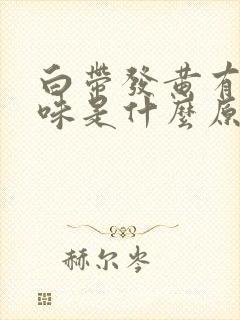 白带發黄有
味是什麼原
赫尔岑